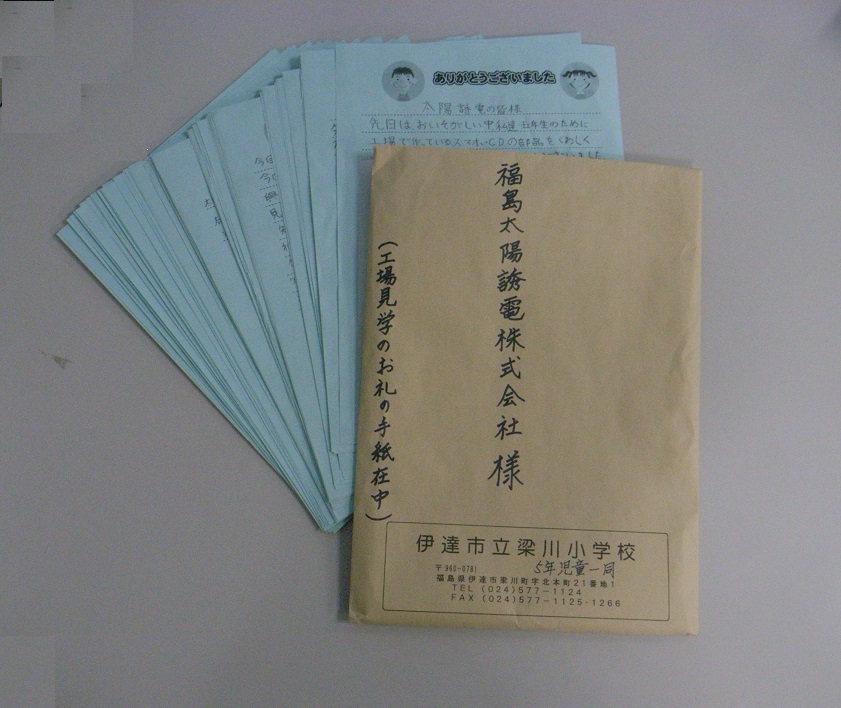 ありがとうございました
太陽誘電の皆様
先日はおいそがしい中私達五年生のために
工場で作っているスマホやCDの部品をくわしく
福島太陽誘電株式会社 様
(工場見学のお礼の手紙在中)
伊達市立梁川小学校
5年児童一同
〒960-0781
福島県伊達市梁川町字北本町21番地1
TEL (024)577-1124
FAX (024)577-1125・1266